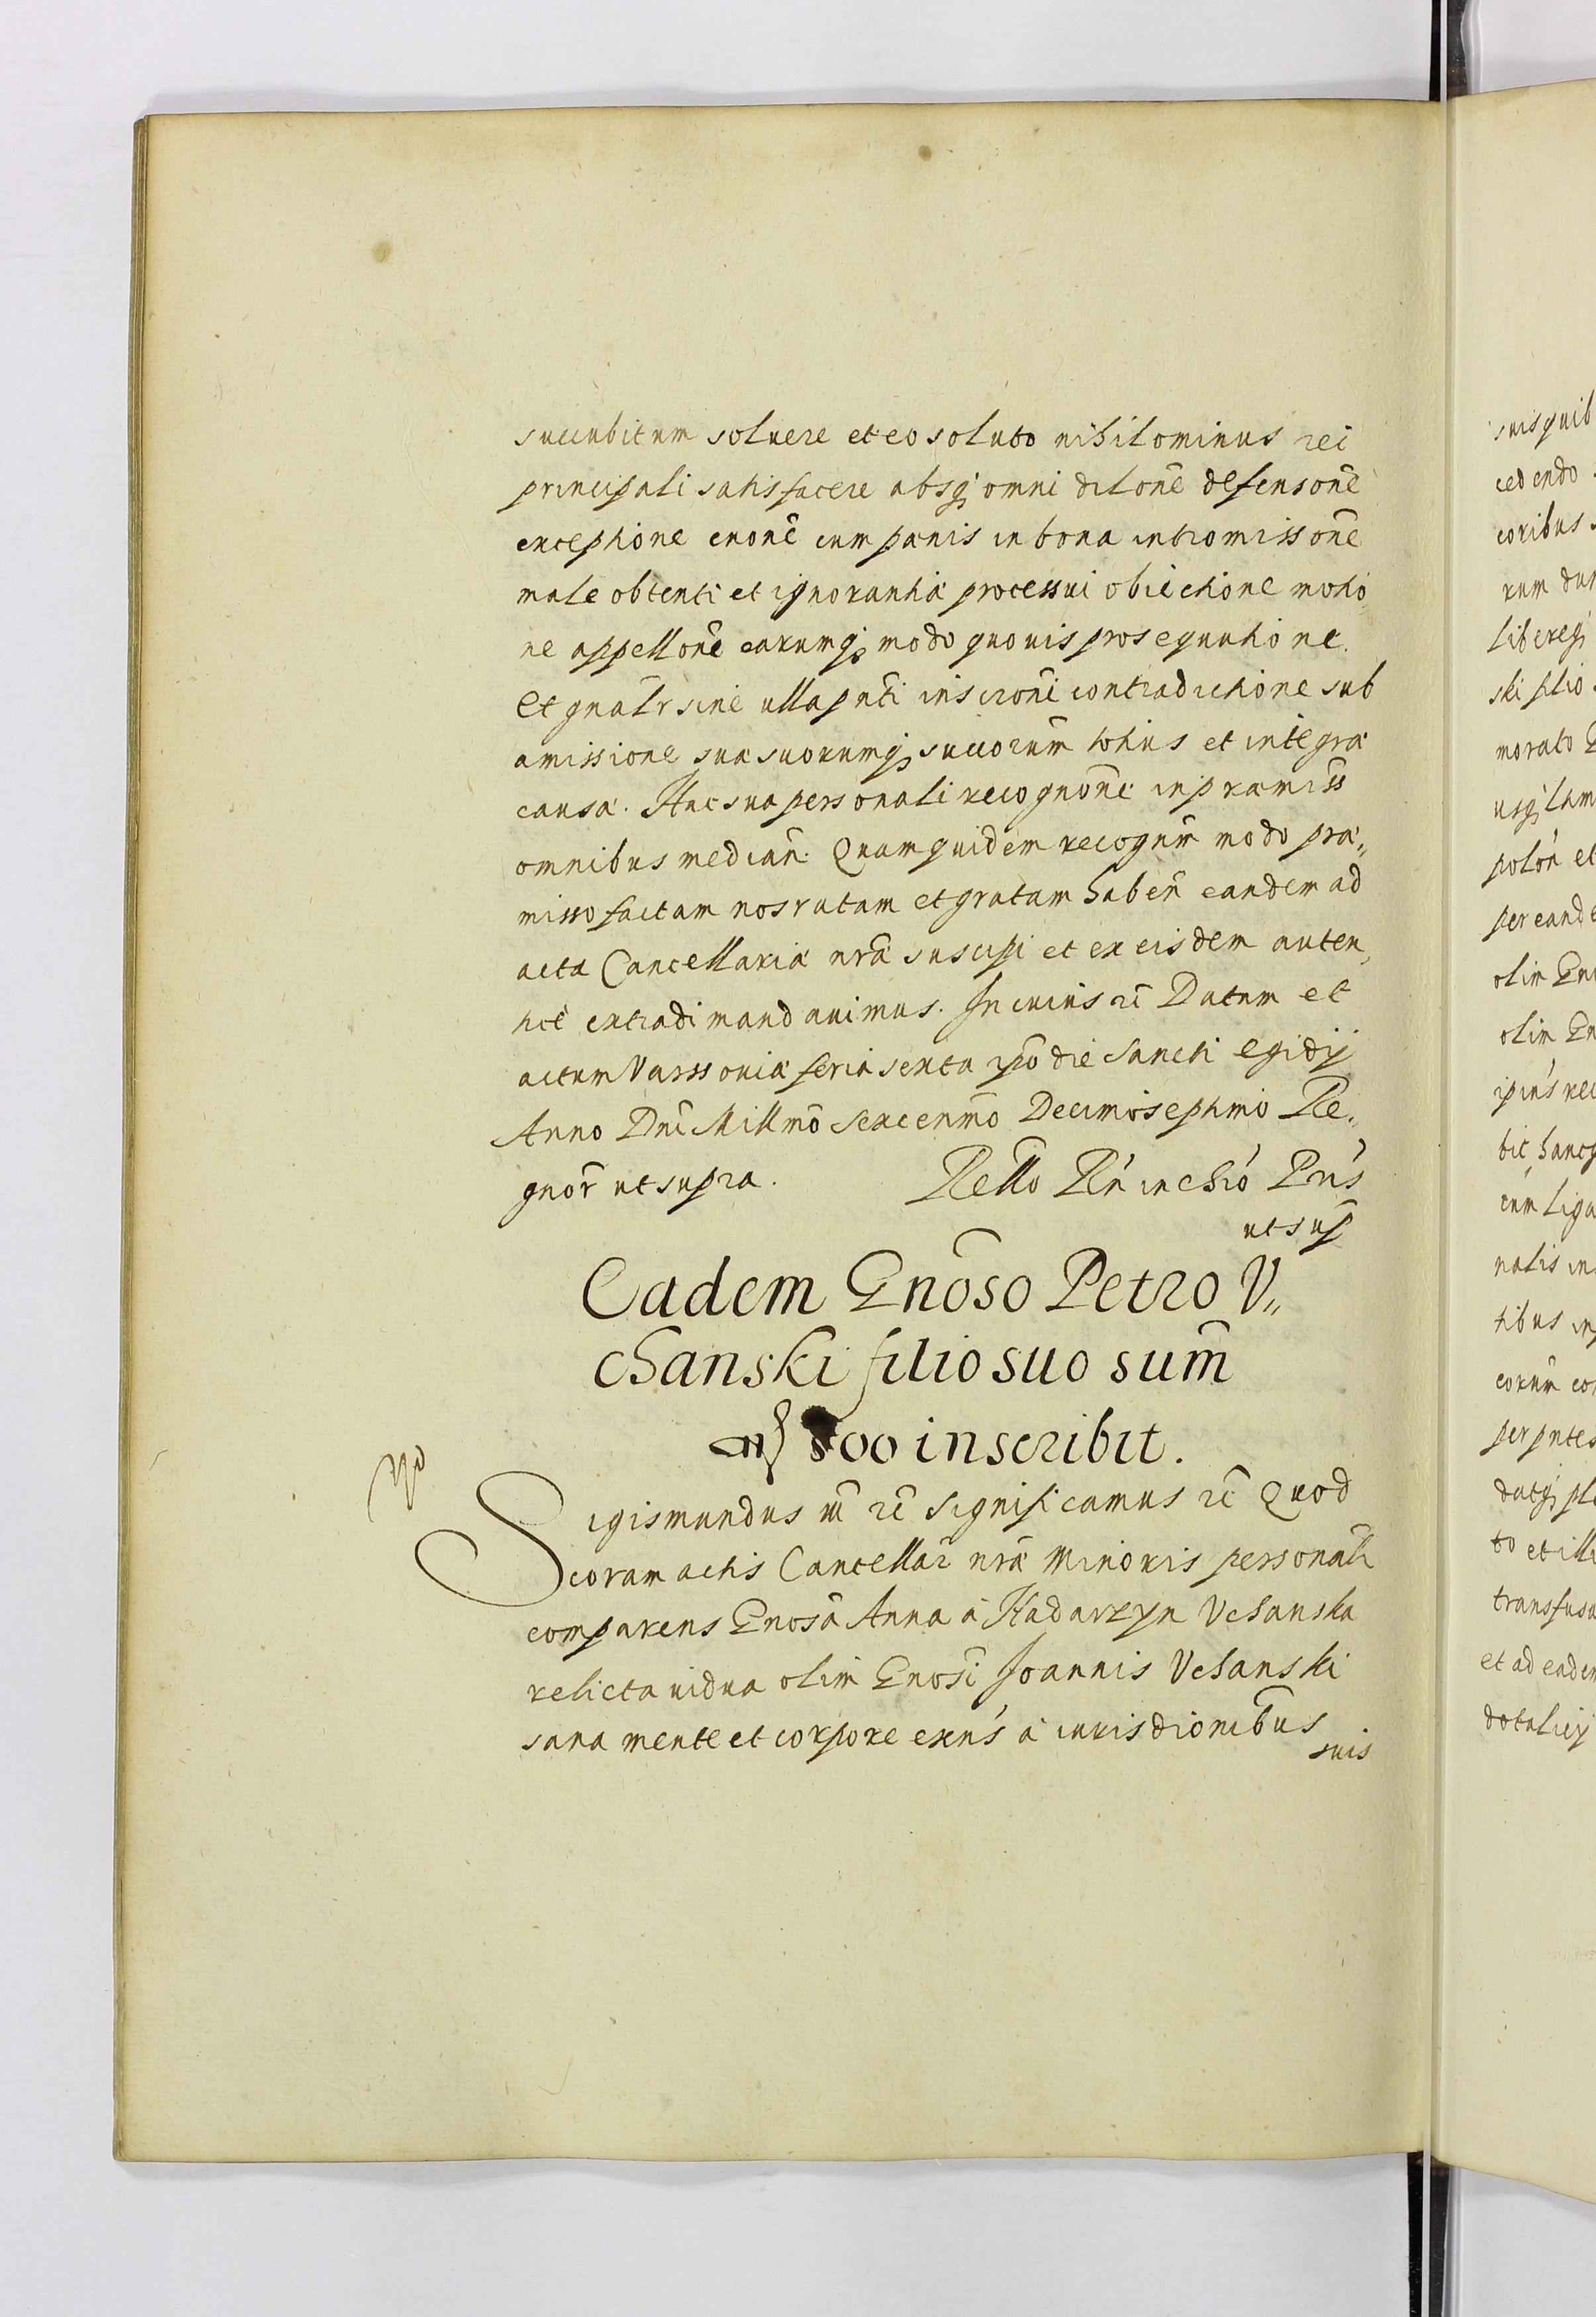 succubitum soluere et eo soluto nihilominus rei
principali satisfacere absq; omni dilone defensone
exceptione euone eum pænis in bona intromissone
male obtenti et ignorantiæ processui obiectione motio
ne appellone earumq; modo quouis prosequutione.
Et gnalr sine ulla pnti inscroni contradictione sub
amissione sua suorumq; succorum totius et integræ
causæ. Hac sua personali recognone in præmiss
omnibus median. Quam quidem recognm modo præ„
misso factam nos ratam et gratam haben eandem ad
acta Cancellariæ nræ suscipi et ex eisdem auten„
tice extradi mandauimus. In cuius rei Datum et
actum Varssouiæ feria sexta ipo die Sancti Egidij
Anno Dni Millmo Sexcenmo Decimoseptimo Re„
gnor ut supra. Rello Rn in chro Pris
ut sup
Eadem Gnoso Petro V„
chanski filio suo sum
mf 800 inscribit.
Sigismundus m rc Significamus rc Quod
coram actis Cancellar nræ minoris personali
comparens Gnosa Anna à Nadarzyn Vchanska
relicta uidua olim Gnosi Joannis Vchanski
sana mente et corpore exns à iurisdionibus
suis
suis quib
cedendo
coribus
rum dun
libereq;
ski filio
morato G
usq; tam
polon et
per eande
olim Gn
olim Gn
ipius rec
bit hancq
cum liga
nalis in
tibus in
eorum con
per pntes
datq; ple
to et ill
transfusa
et ad eadem
dotalicij